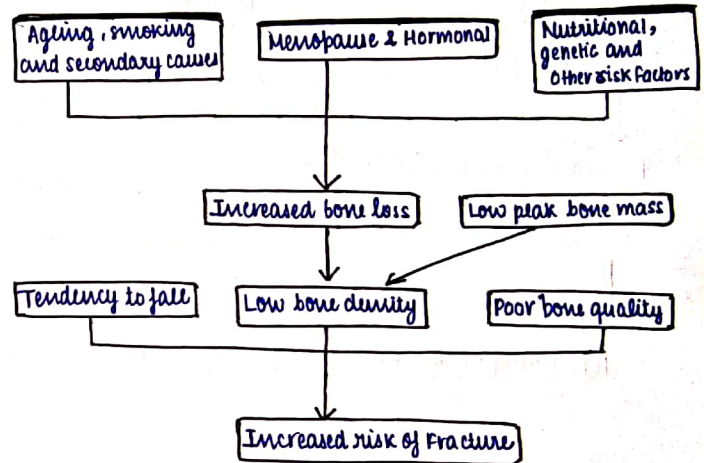 Ageing, smoking
and secondary causes
Menopause & Hormonal
Nutritional,
genetic and
Other risk factors
Increased bone loss
Low peak bone mass
Tendency to fall
Low bone density
Poor bone quality
Increased risk of Fracture